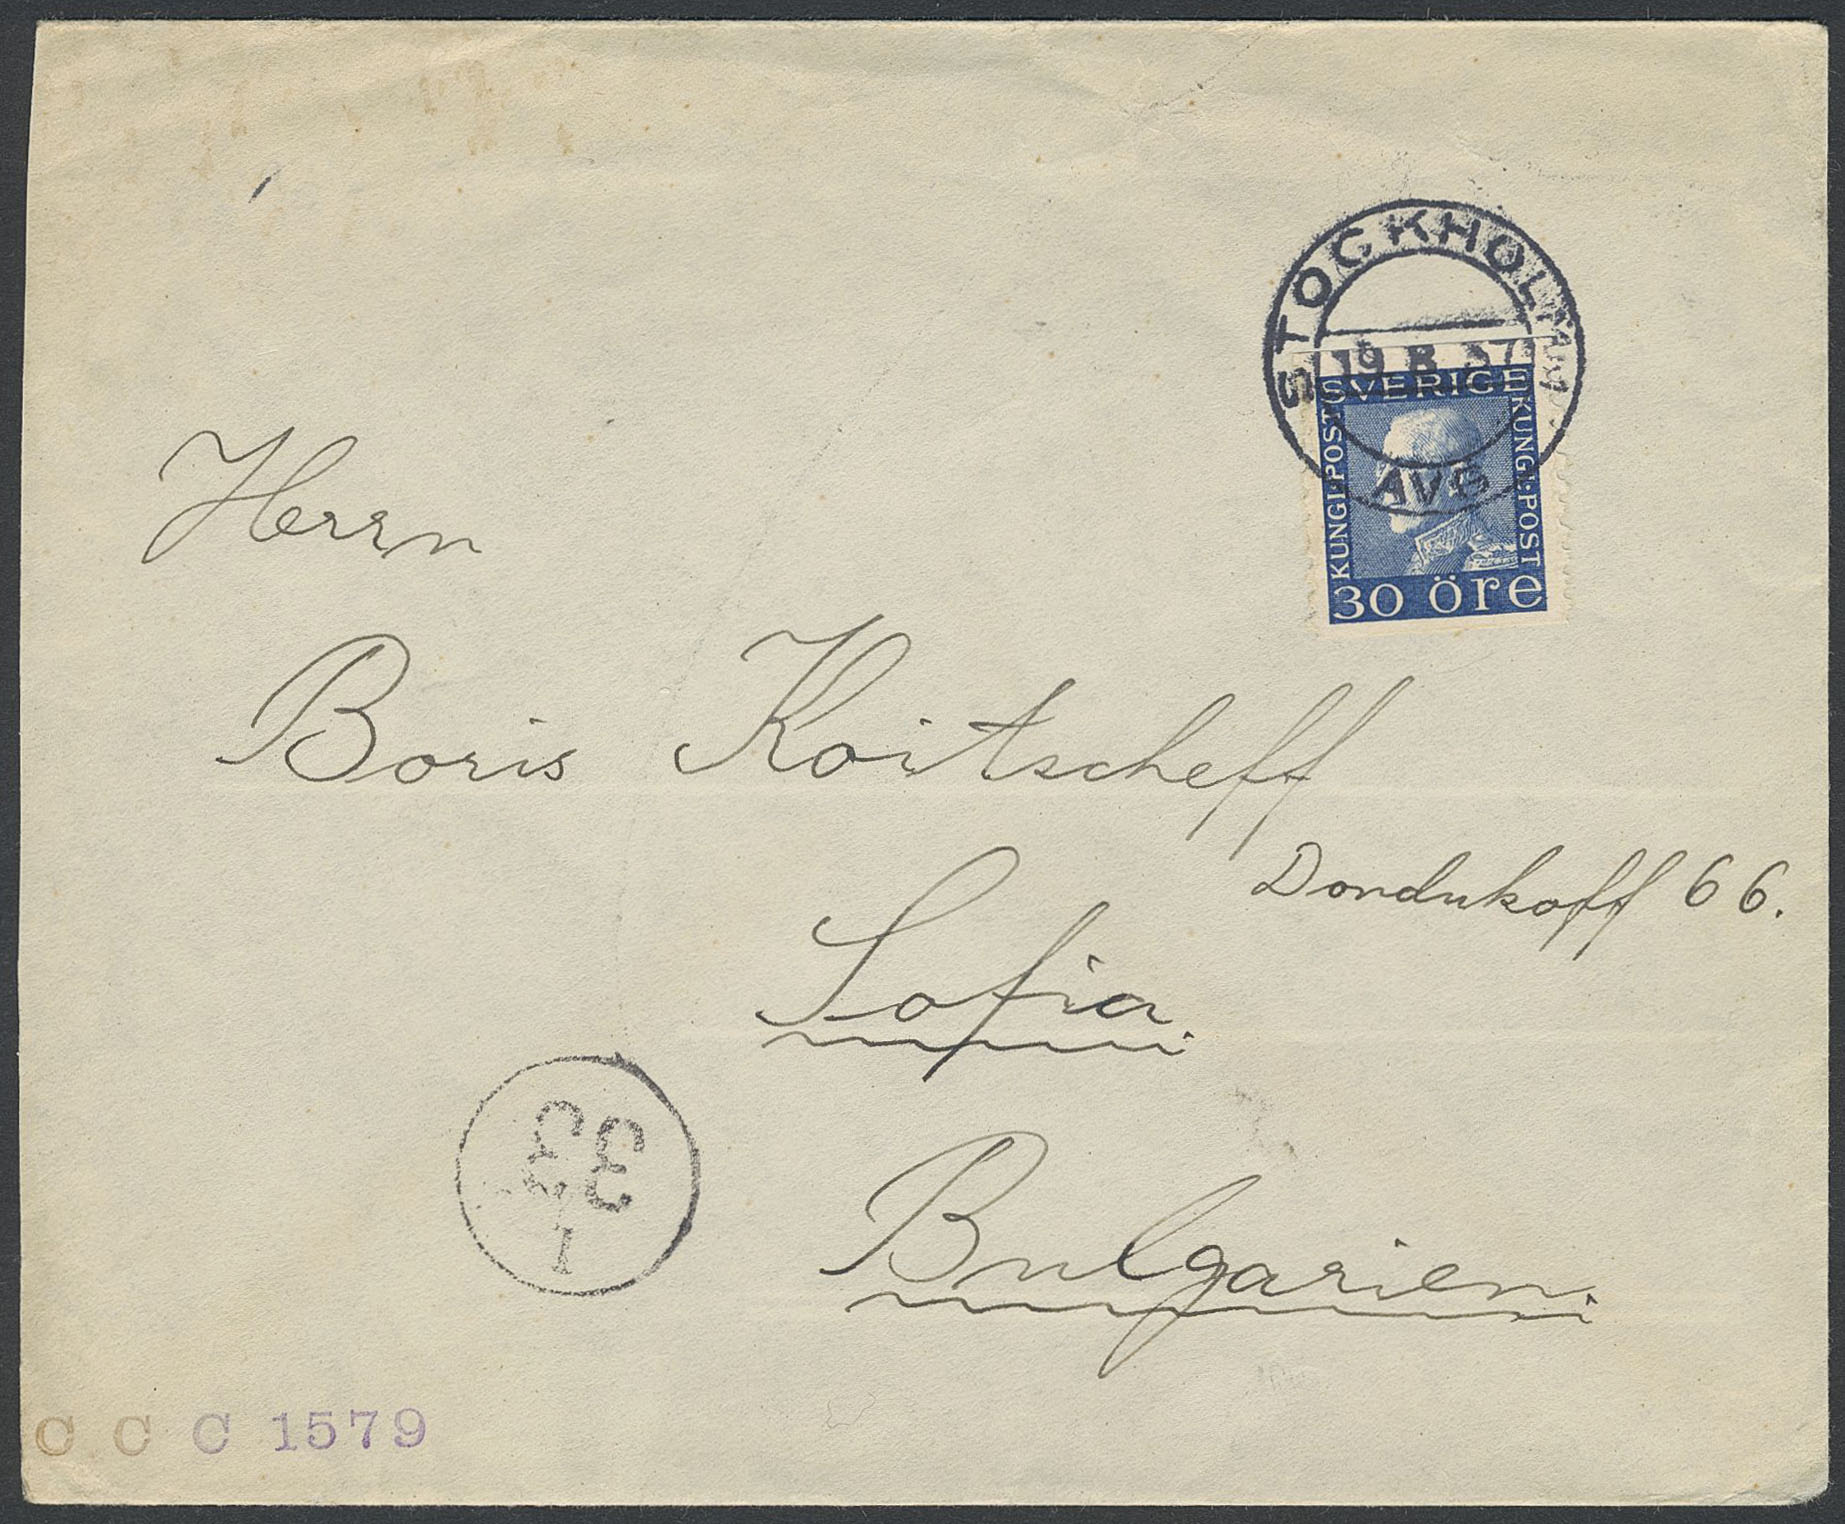 STOCKHOLM
19 8 37
AVG
SVERIGE
KUNGL·POST
KUNGL·POST
30 öre
Herrn
Boris Koitscheff
Dondukoff 66.
Sofia.
Bulgarien.
33
1
C C C 1579